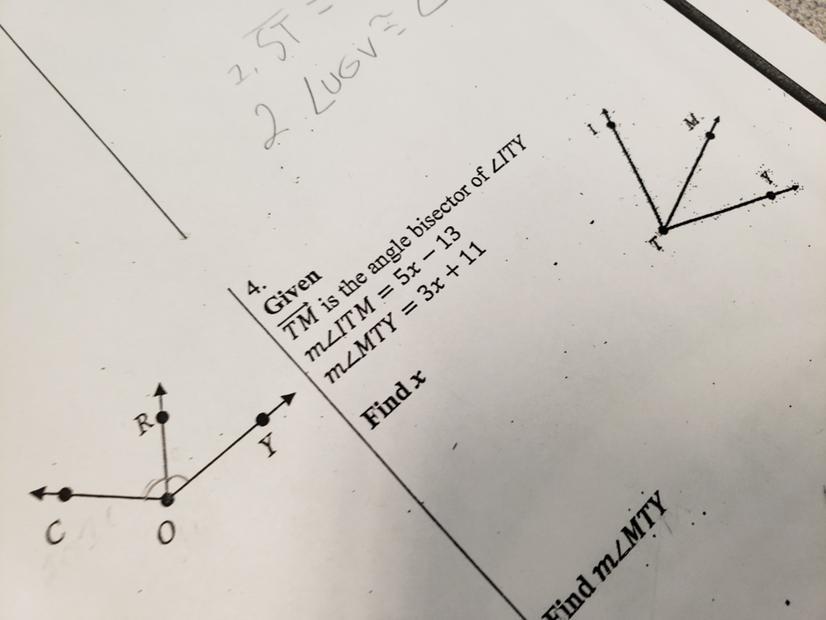 2. ST =
2 ∠UGV ≅ ∠
I
M
Y
T
4.
Given
TM is the angle bisector of ∠ITY
m∠ITM = 5x − 13
m∠MTY = 3x + 11
Find x
Find m∠MTY
R
Y
C
O